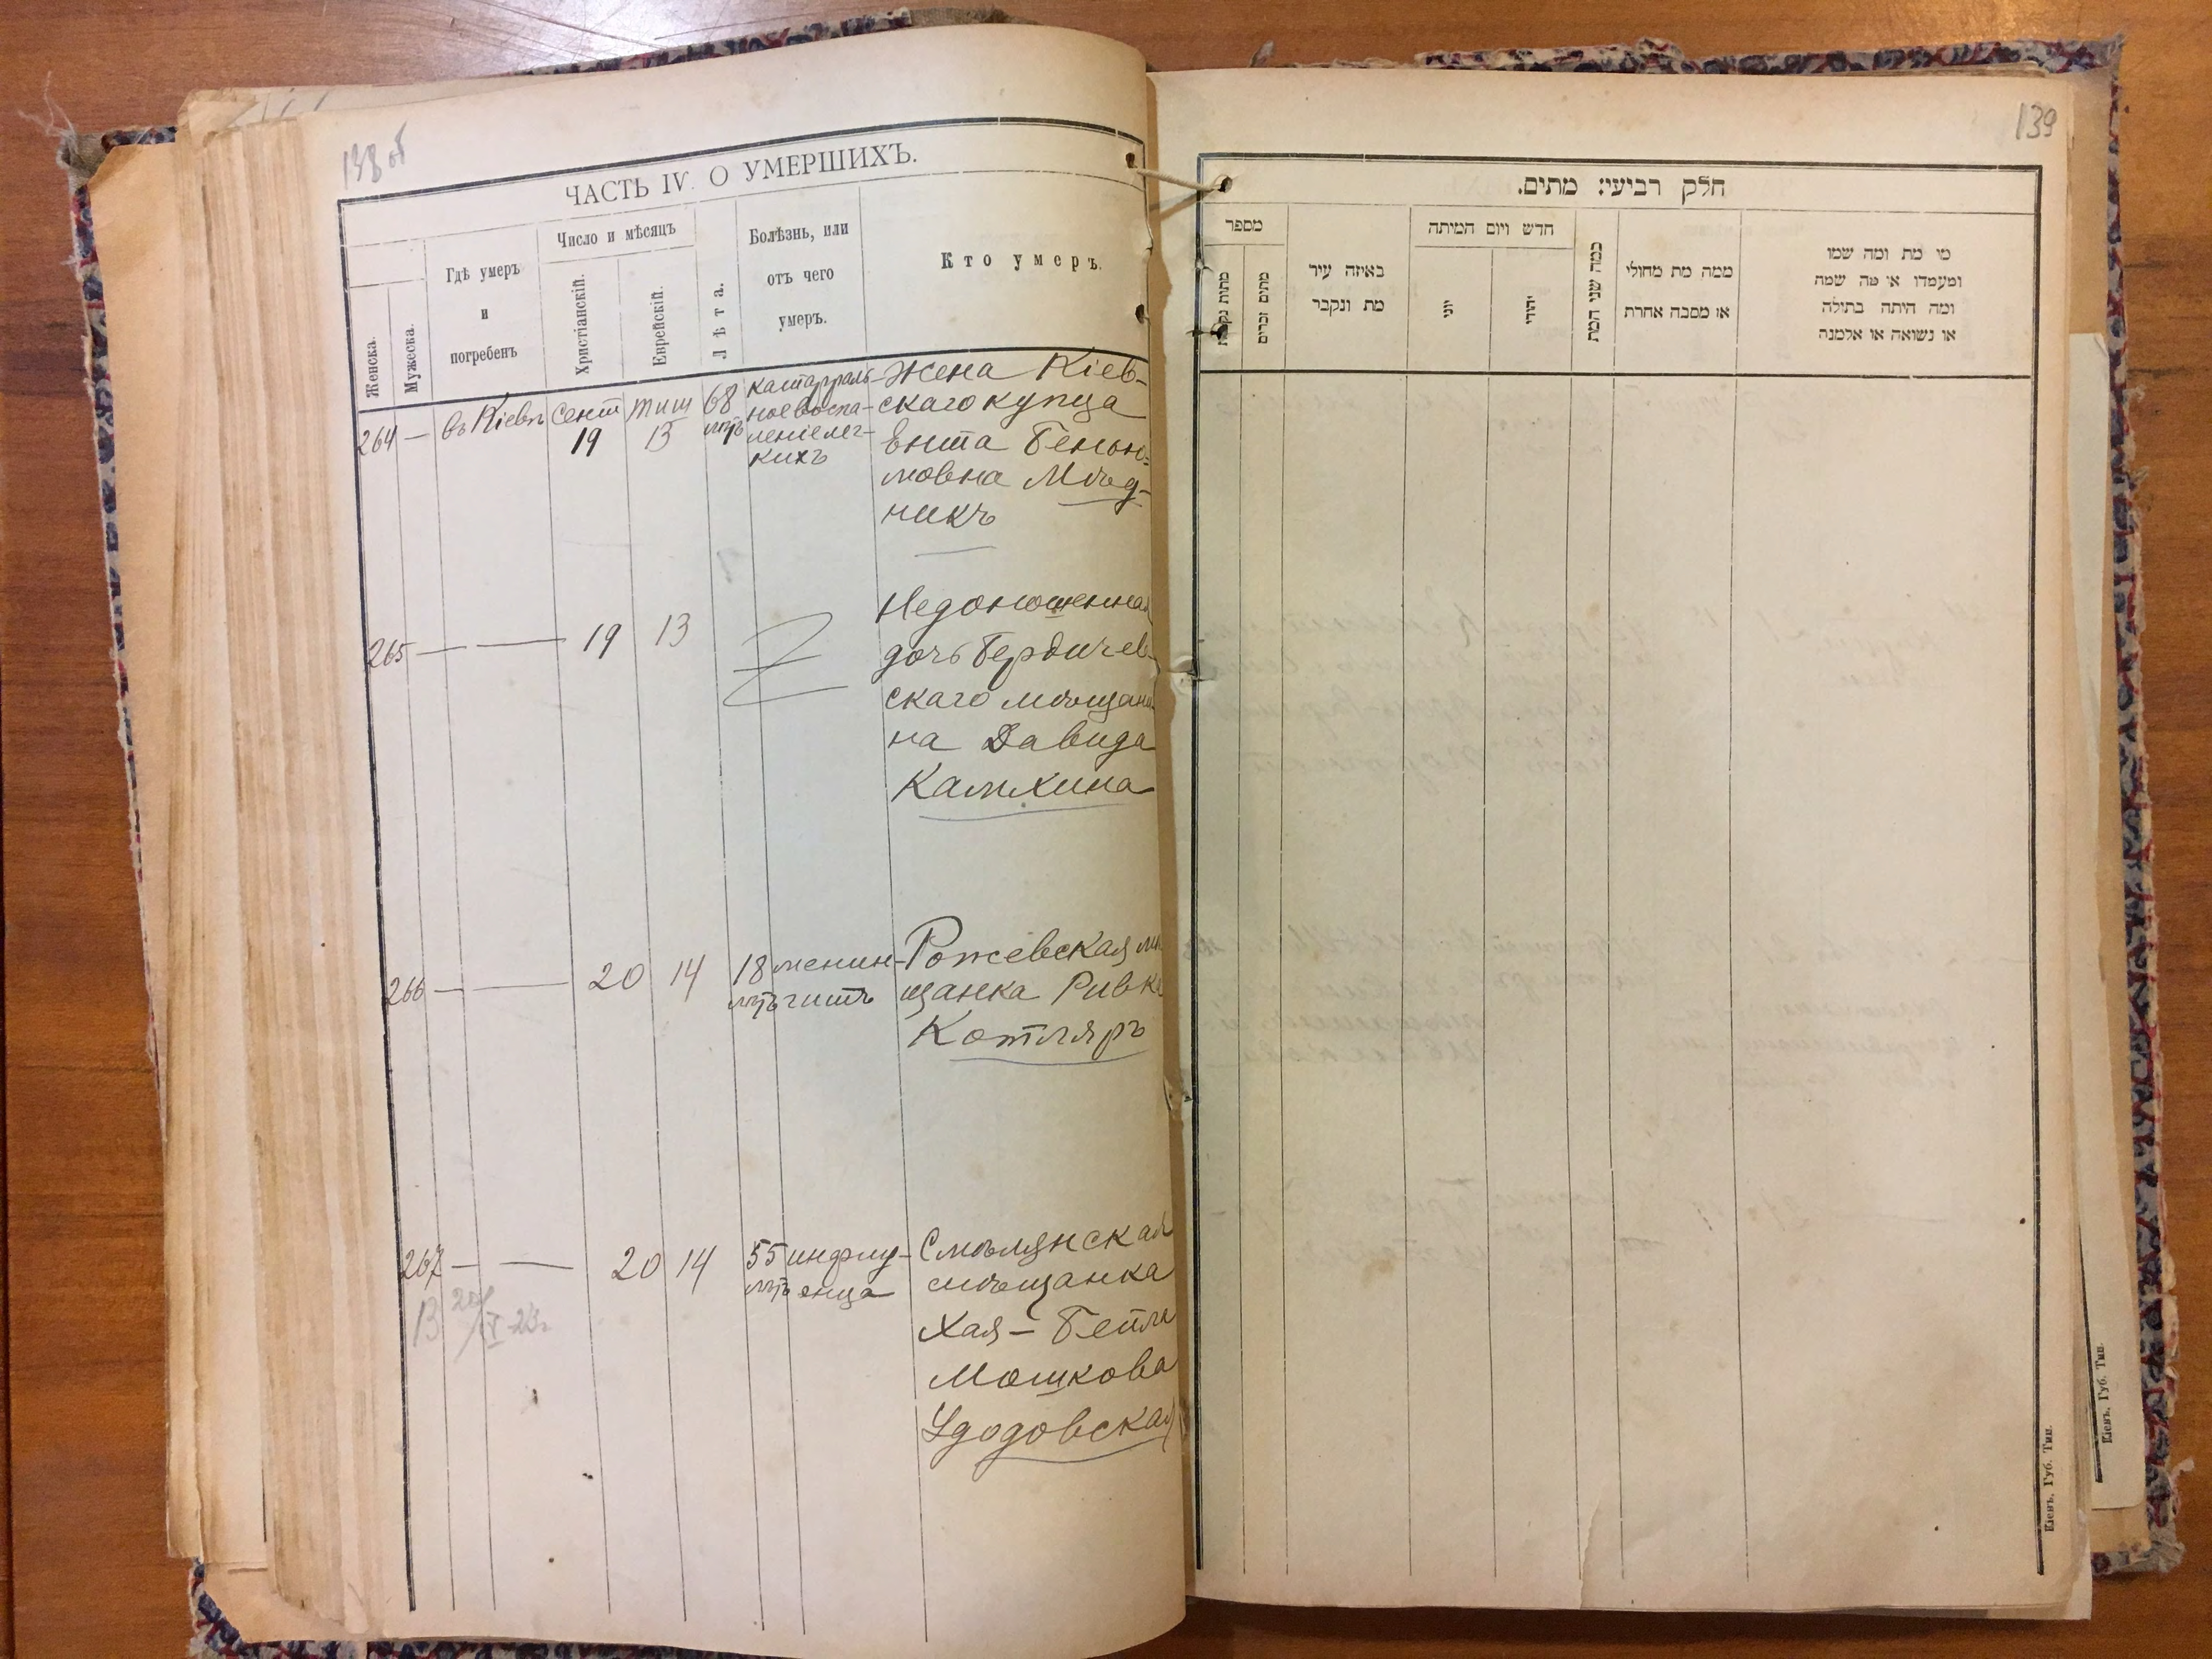 138 об
ЧАСТЬ IV. О УМЕРШИХЪ.
Женска.
Мужеска.
Гдѣ умеръ
и
погребенъ
Число и мѣсяцъ
Христіанскій.
Еврейскій.
Лѣта.
Болѣзнь, или
отъ чего
умеръ.
Кто умеръ.
264 — въ Кіевѣ Сент 19 тиш 13 68 лѣтъ
катарраль-
ное воспа-
леніе лег-
кихъ
Жена Кіев-
скаго купца
Ента Бенью-
мовна Мѣд-
никъ
265 — — 19 13
Недоношенная
дочь Бердичев-
скаго мѣщани-
на Давида
Калихина
266 — — 20 14 18 лѣтъ
менин-
гитъ
Рожевская мѣ-
щанка Ривка
Котляръ
267 — — 20 14 55 лѣтъ
инфлу-
енца
Смѣлянская
мѣщанка
Хая-Бейла
Мошкова
Удодовская
139
חלק רביעי: מתים.
מספר
מתות נקבות
מתים זכרים
באיזה עיר
מת ונקבר
חדש ויום המיתה
יוני
יהודי
כמה שני המת
ממה מת מחולי
או מסבה אחרת
מי מת ומה שמו
ומעמדו או מה שמה
ומה היתה בתולה
או נשואה או אלמנה
Кіевъ. Губ. Тип.
Кіевъ. Губ. Тип.